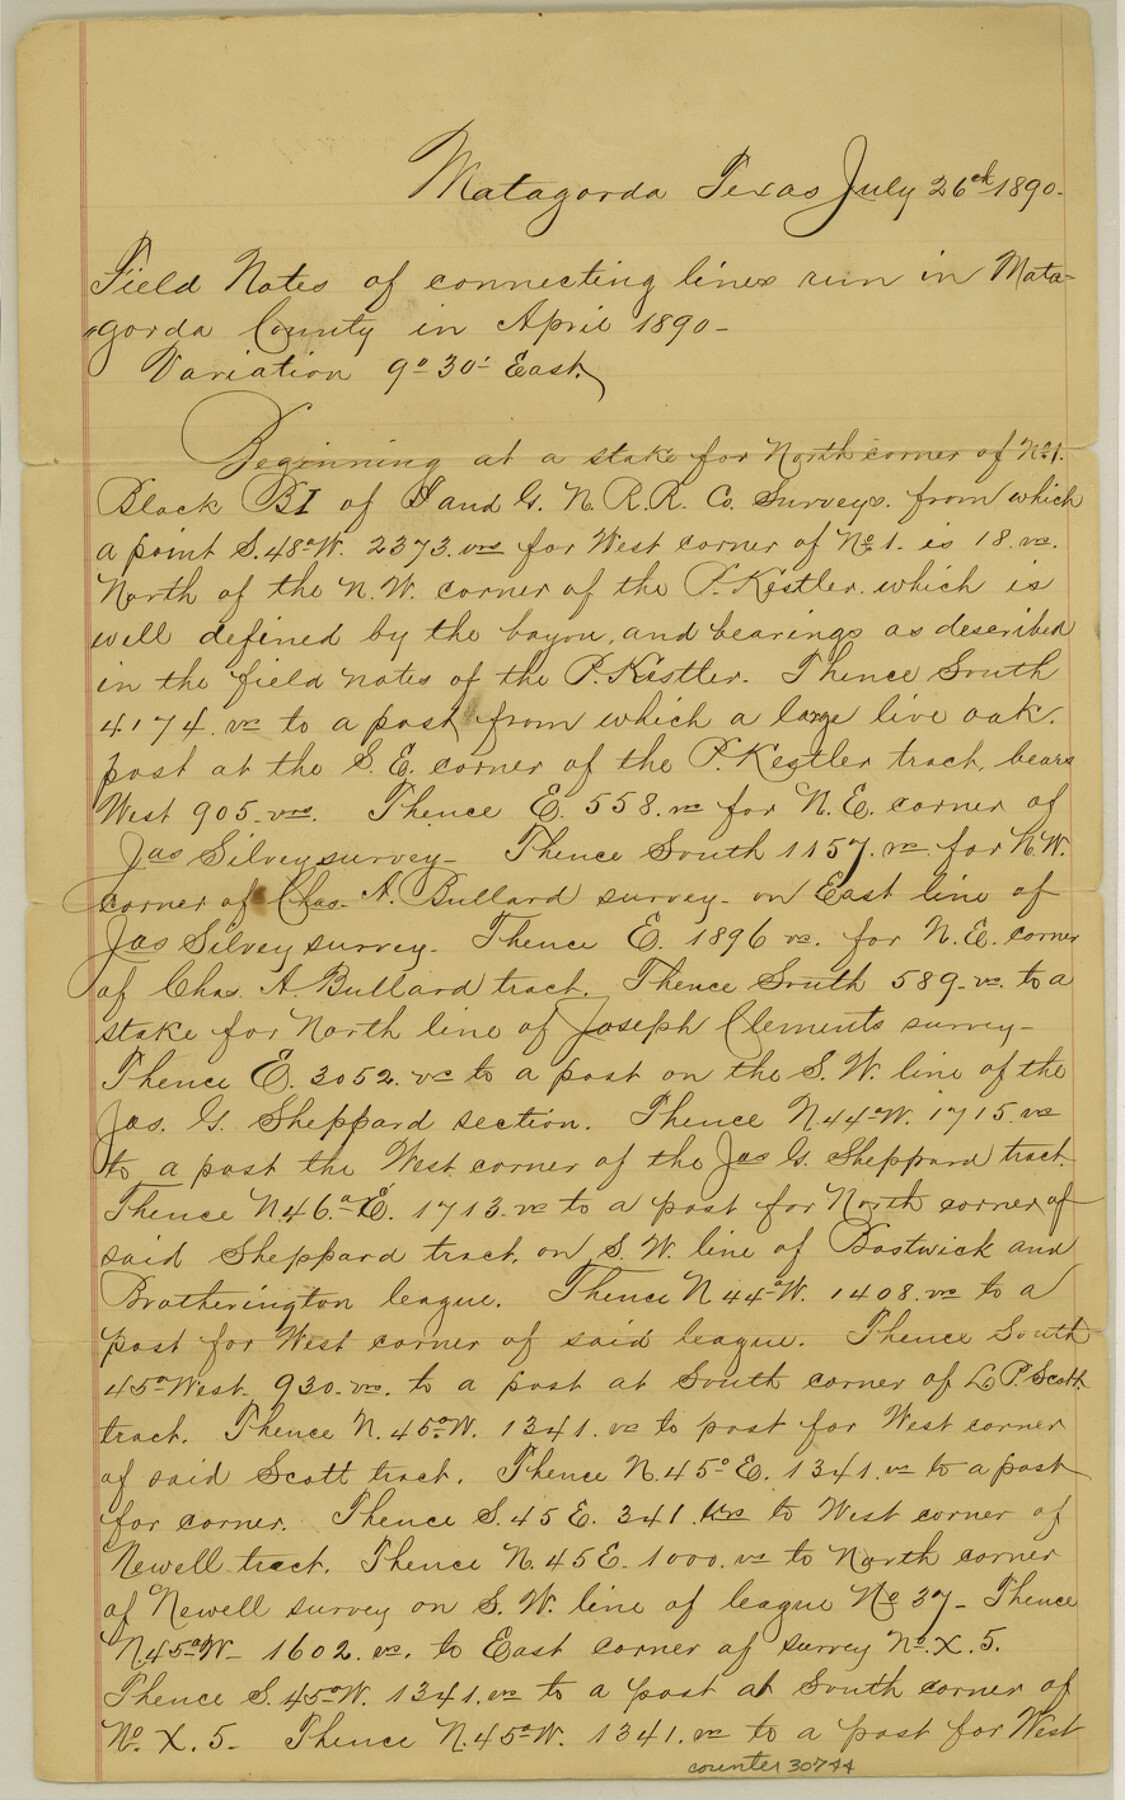 Matagorda Texas July 26th 1890.
Field Notes of connecting lines run in Mata-
"gorda County in April 1890-
Variation 9° 30' East.
Beginning at a stake for North corner of No 1.
Block BI of I and G. N. R. R. Co. Surveys. from which
a point S. 48° W. 2373. vrs for West corner of No 1. is 18. vs.
North of the N. W. corner of the P. Kestler. which is
well defined by the bayou, and bearings as described
in the field notes of the P. Kestler. Thence South
4174. vs to a post from which a large live oak.
post at the S. E. corner of the P. Kestler tract, bears
West 905. vrs. Thence E. 558. vs for N. E. corner of
Jas Silvey survey- Thence South 1157. vs. for N. W.
corner of Chas. A. Bullard survey- on East line of
Jas Silvey survey- Thence E. 1896 vs. for N. E. corner
of Chas. A. Bullard tract. Thence South 589- vs. to a
stake for North line of Joseph Clements survey-
Thence E. 3052. vs to a post on the S. W. line of the
Jas. G. Sheppard section. Thence N. 44° W. 1715. vs
to a post the West corner of the Jas G. Sheppard tract.
Thence N. 46.° E. 1713. vs to a post for North corner of
said Sheppard tract, on S. W. line of Bostwick and
Brotherington league. Thence N 44° W. 1408. vs to a
post for West corner of said league. Thence South
45° West- 930- vs. to a post at South corner of L. P. Scott
tract. Thence N. 45° W. 1341. vs to post for West corner
of said Scott tract. Thence N. 45° E. 1341. vs to a post
for corner. Thence S. 45 E. 341. vrs to West corner of
Newell tract. Thence N. 45 E. 1000. vs to North corner
of Newell survey on S. W. line of league No 37- Thence
N. 45° W- 1602. vs. to East corner of survey No. X. 5.
Thence S. 45° W. 1341. vs to a post at South corner of
No. X. 5- Thence N. 45° W. 1341. vs to a post for West
counter 30744